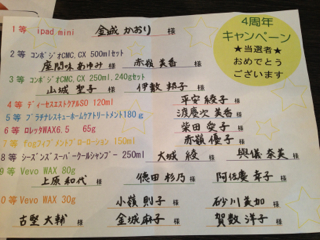 1等 ipad mini 金城 かおり 様
4周年
キャンペーン
★当選者★
おめでとう
ございます
2等 コンポジオCMC,CX 500mlセット
座間味 あゆみ 様 赤嶺 美香 様
3等 コンポジオCMC,CX 250ml,240gセット
山城 聖子 様 伊敷 邦子 様
4等 ディーセスエストケアルSO 120ml 平安 綾子 様
5等 プラチナレスキューホームケアトリートメント180g 渡慶次 美香 様
6等 ロレッタWAX6.5 65g 柴田 愛子 様
7等 150ml 赤嶺 優子 様
8等 シーズンズスーパークールシャンプー 250ml 大城 綾 様 與儀 奈美 様
9等 Vevo WAX 80g
上原 和代 様 徳田 杉乃 様 阿佐慶 幸子 様
10等 Vevo WAX 30g 小嶺 則子 様 砂川 美加 様
古堅 大輔 様 金城 麻子 様 賀数 洋子 様